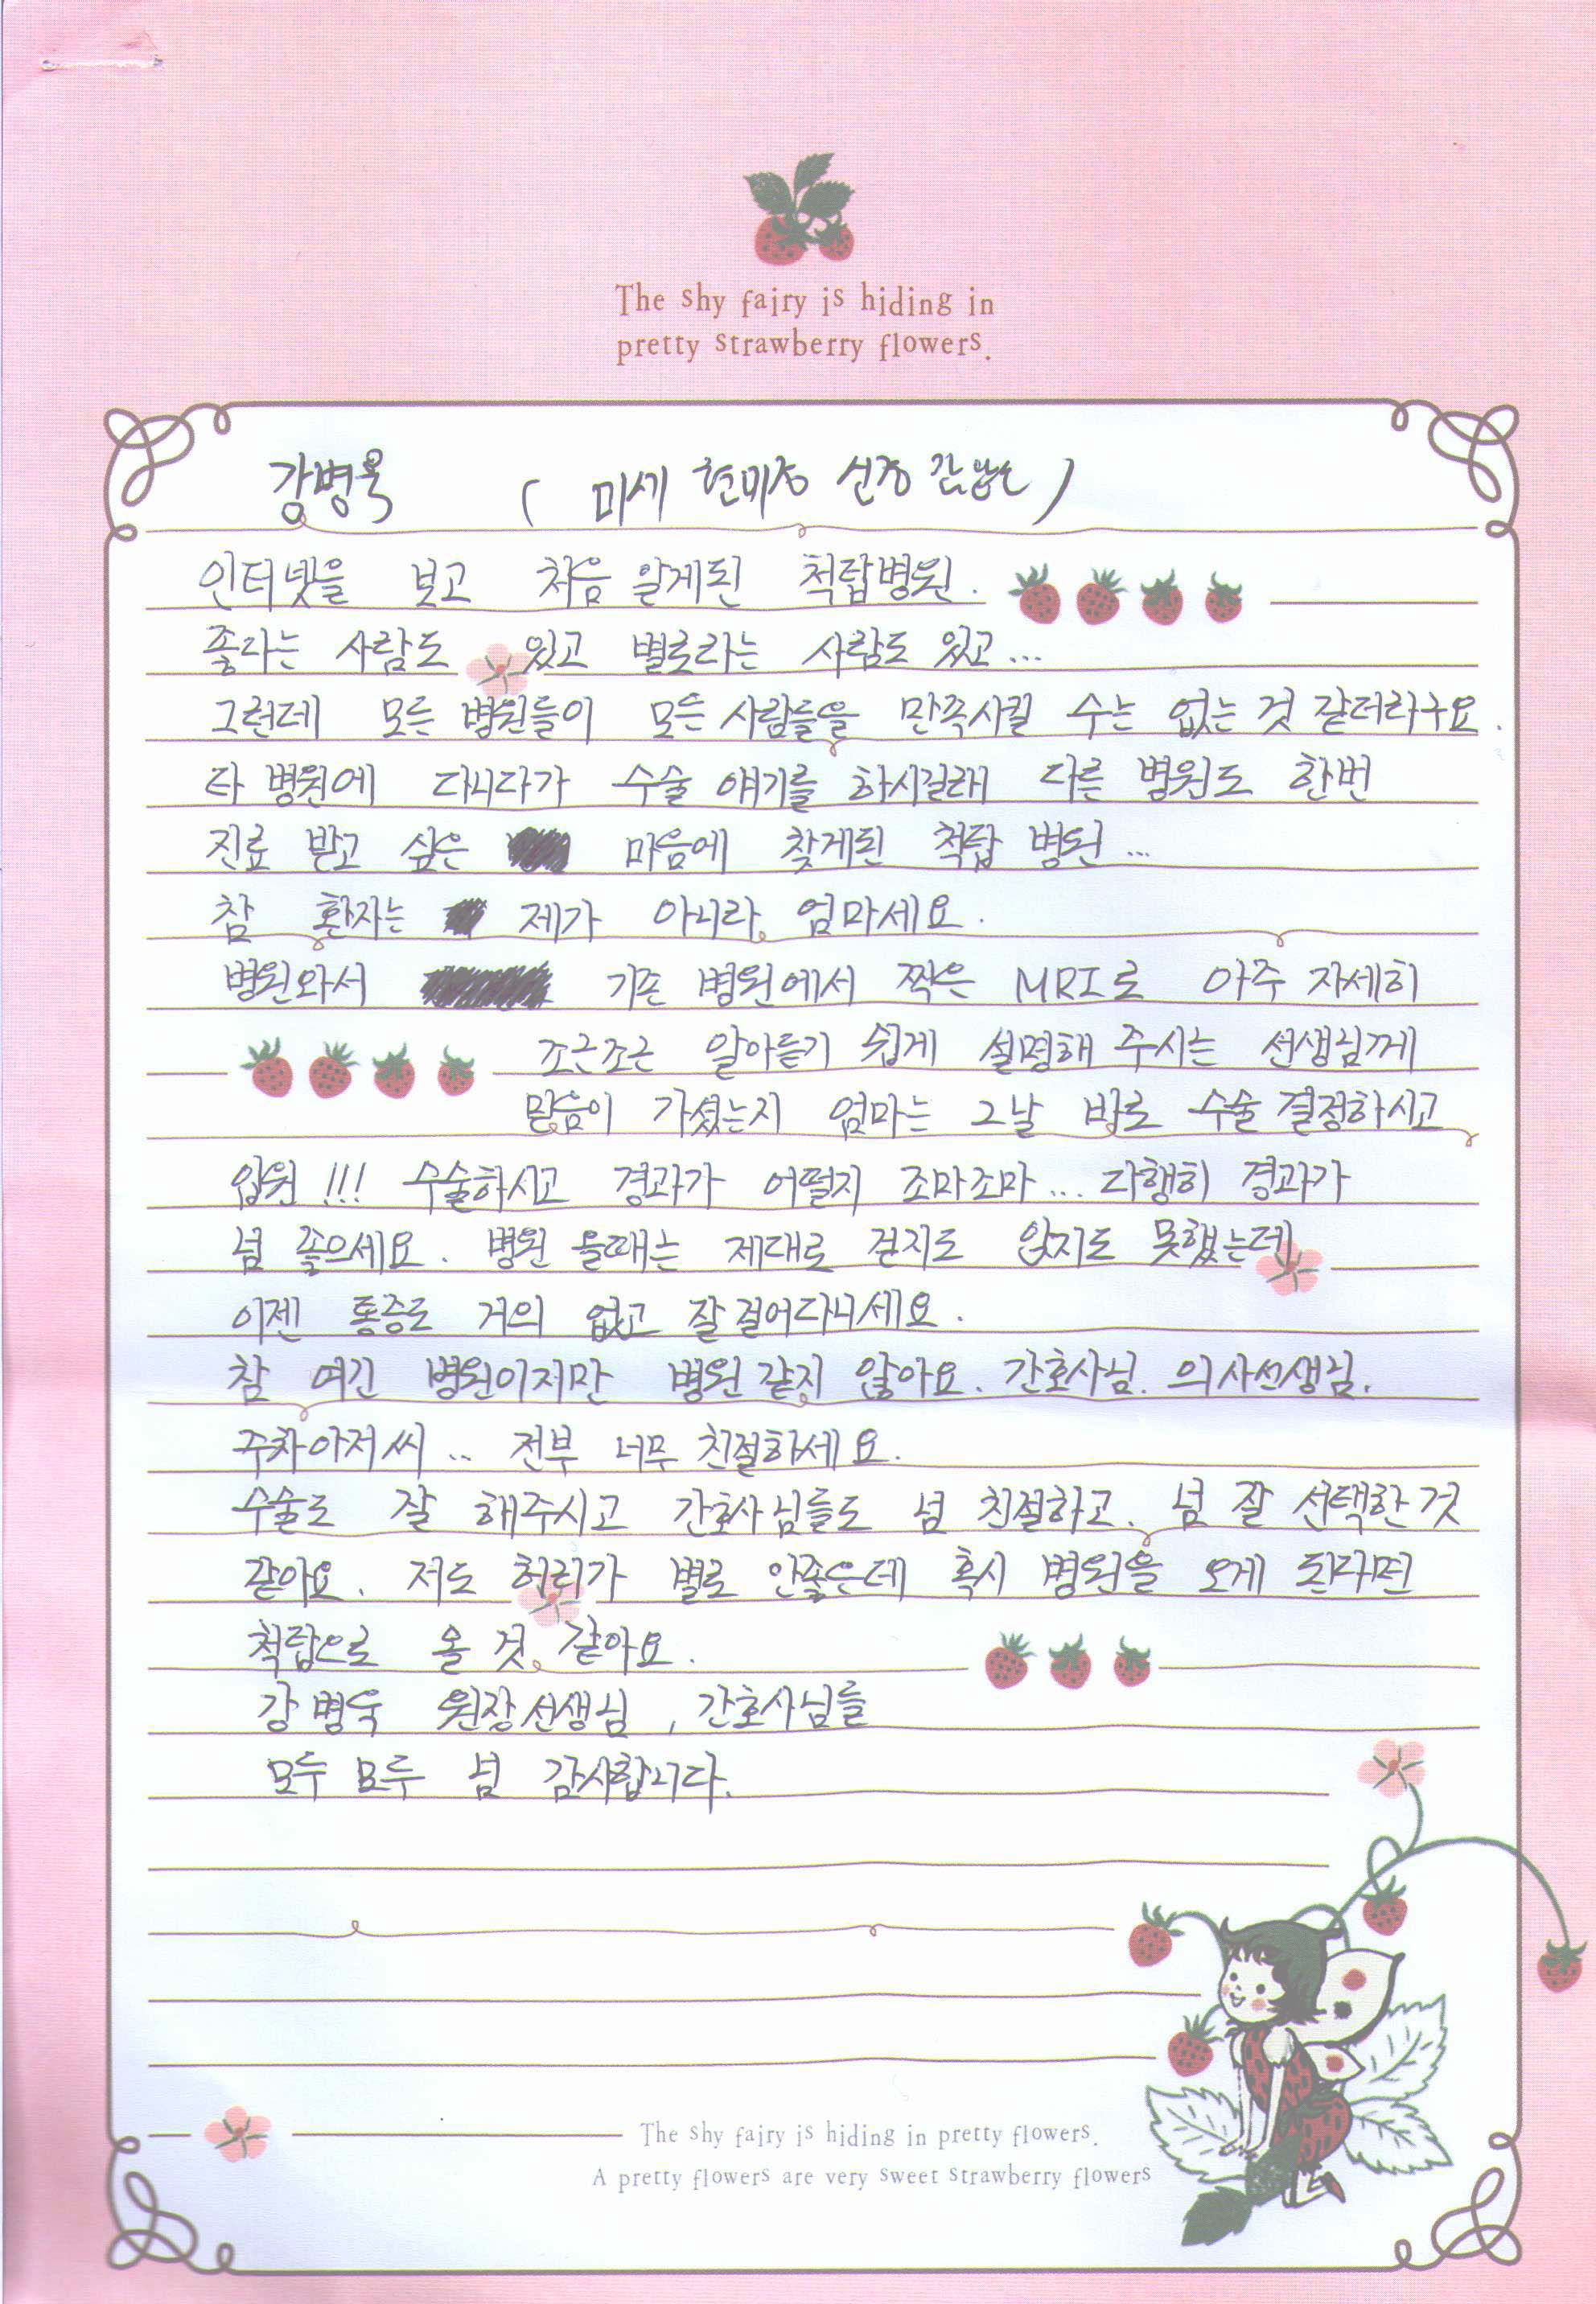 The shy fairy is hiding in
pretty strawberry flowers.
강병욱 ( 미세 현미경 신경 감압술 )
인터넷을 보고 처음 알게된 척탑병원.
좋다는 사람도 있고 별로라는 사람도 있고...
그런데 모든 병원들이 모든 사람들을 만족시킬 수는 없는 것 같더라구요.
타 병원에 다니다가 수술 얘기를 하시길래 다른 병원도 한번
진료 받고 싶은 마음에 찾게된 척탑 병원...
참 환자는 제가 아니라 엄마세요.
병원와서 기존 병원에서 찍은 MRI로 아주 자세히
조근조근 알아듣기 쉽게 설명해 주시는 선생님께
믿음이 가셨는지 엄마는 그날 바로 수술 결정하시고
입원!!! 수술하시고 경과가 어떨지 조마조마... 다행히 경과가
넘 좋으세요. 병원 올때는 제대로 걷지도 앉지도 못했는데
이젠 통증도 거의 없고 잘 걸어다니세요.
참 여긴 병원이지만 병원 같지 않아요. 간호사님. 의사선생님.
주차아저씨.. 전부 너무 친절하세요.
수술도 잘 해주시고 간호사님들도 넘 친절하고. 넘 잘 선택한 것
같아요. 저도 허리가 별로 안좋은데 혹시 병원을 오게 된다면
척탑으로 올 것 같아요.
강병욱 원장선생님, 간호사님들
모두 모두 넘 감사합니다.
The shy fairy is hiding in pretty flowers.
A pretty flowers are very sweet strawberry flowers